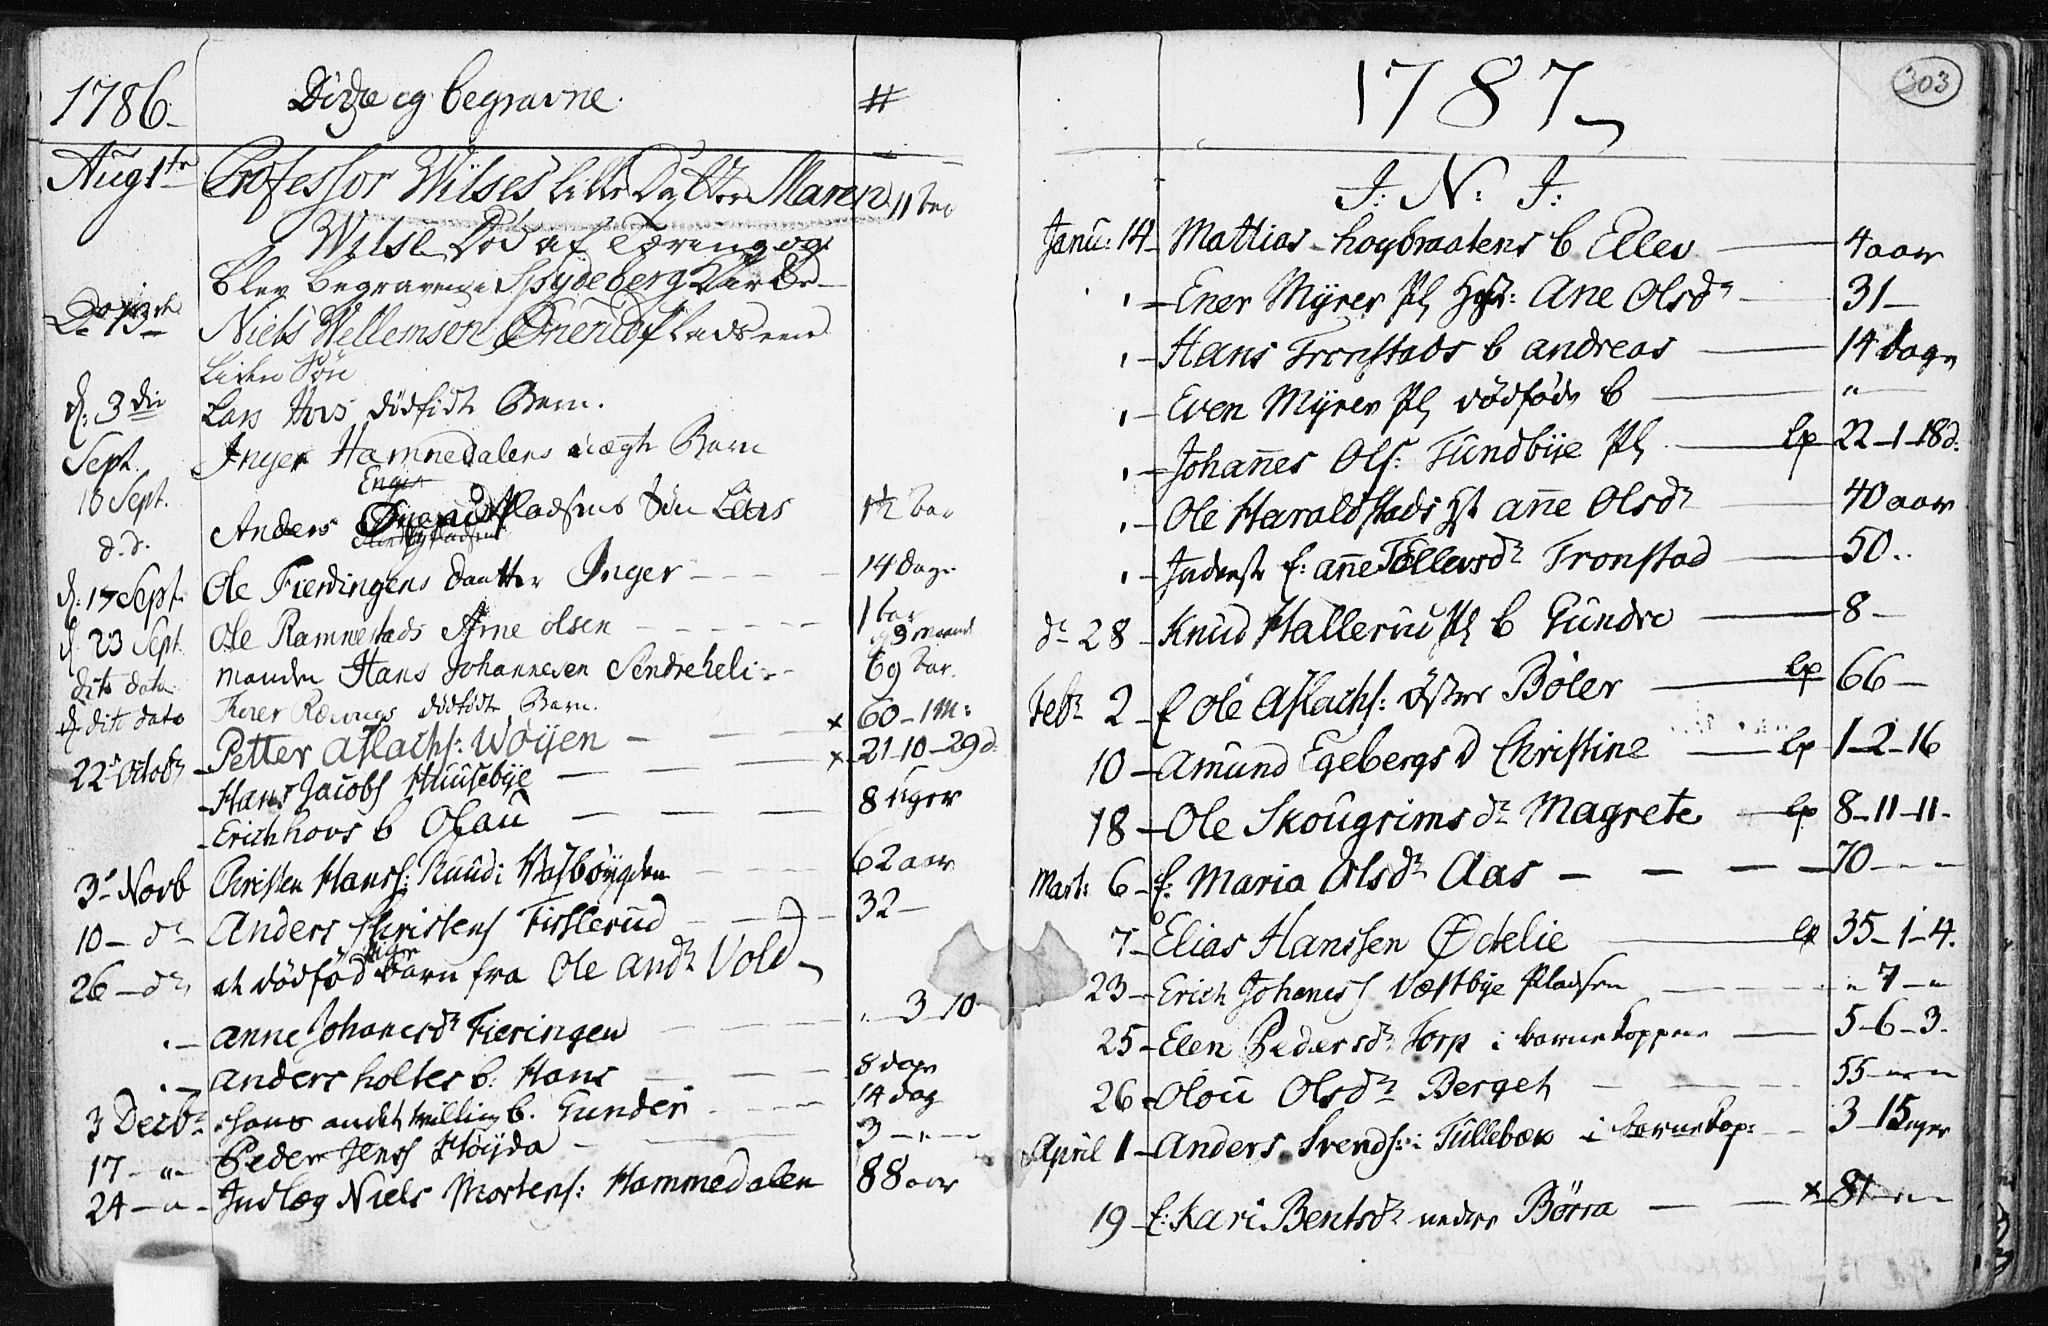 1786. Døde og begravne. #
Aug 1te Professor Wilses lille Datter Maren 11 aar
Wilse Død af Tæring og
blev begraven i Spydeberg Kirke
Do 13de Niels Wellemsen Ønerud Pladsens
liden Søn
d: 3die Lars Hovs dødfødt Barn.
Sept. Inger Hammedalens uægte Barn
10 Sept. Enger
d. d. Anders Pladsens Søn Lars 1½ aar
d: 17 Sept. Ole Fierdingens Daatter Inger 14 Dage
d 23 Sept. Ole Ramnestads Arne Olsen 1 aar 9 maaned
dito dato manden Hans Johannesen Søndreheli 69 aar.
d. dito dato Thorer dødfødt Barn.
22de Octobr Petter Aslachs: Wøyen x 60-1M:
Hans Jacobs Huusebye x 21-10-29d.
Erich hovs b Olau 8 uger
3de Novb Christen Hanss: Ruud i 62 aar
10 - dr Anders Christens Fisslerud 32 -
26 - dr et dødfød Barn fra Ole Andr Vold
" - Anne Johanesdr Fieringen " 3 10
" - Anders holtes b: Hans 8 dage
3 Decbr hans andet tvilling b. Gunder 14 dag
17 - " - Peder Jens Høyda 3 - " -
24 - " - Indlæg Niels Mortens: Hammedalen 88 aar
1787 303
J: N: J:
Janu: 14 - Mattias høybraatens b Ellev 4 aar
" - Ener Myrer Pl Hst: Ane Olsdr 31 -
" - Hans Tronstads b Andreas 14 dage
" - Even Myrer Pl dødføde b "
" - Johannes Ols: Tundbye Pl lp 22-1-18d.
" - Ole Haraldstads Hst Anne Olsdr 40 aar
" - Inderste E: Anne Tollevsdr Tronstad 50..
dr 28 - Knud Hallerud Pl b Gundro 8 -
Febr 2 - E Ole Aslachs: Østre Bøler lp 66 -
10 - Amund Egebergs D Christine lp 1-2-16
18 - Ole Skougrims dr Magrete lp 8-11-11-
Mart: 6 - E: Maria Olsdr Aas 70 - - -
7 - Elias Hanssen Ødelie lp 35-1-4.
23 - Erich Johaness Vestbye Pladsen " 7 - "
25 - Elen Pedersdr Torp i barnekopper 5-6-3.
26 - Olou Olsdr Berget 55 - " - "
April 1 - Anders Svends: i Tullebæk i barnekop: 3-15 uger
19 - E: Kari Bentsdr nedre Børra x 81 - " - "